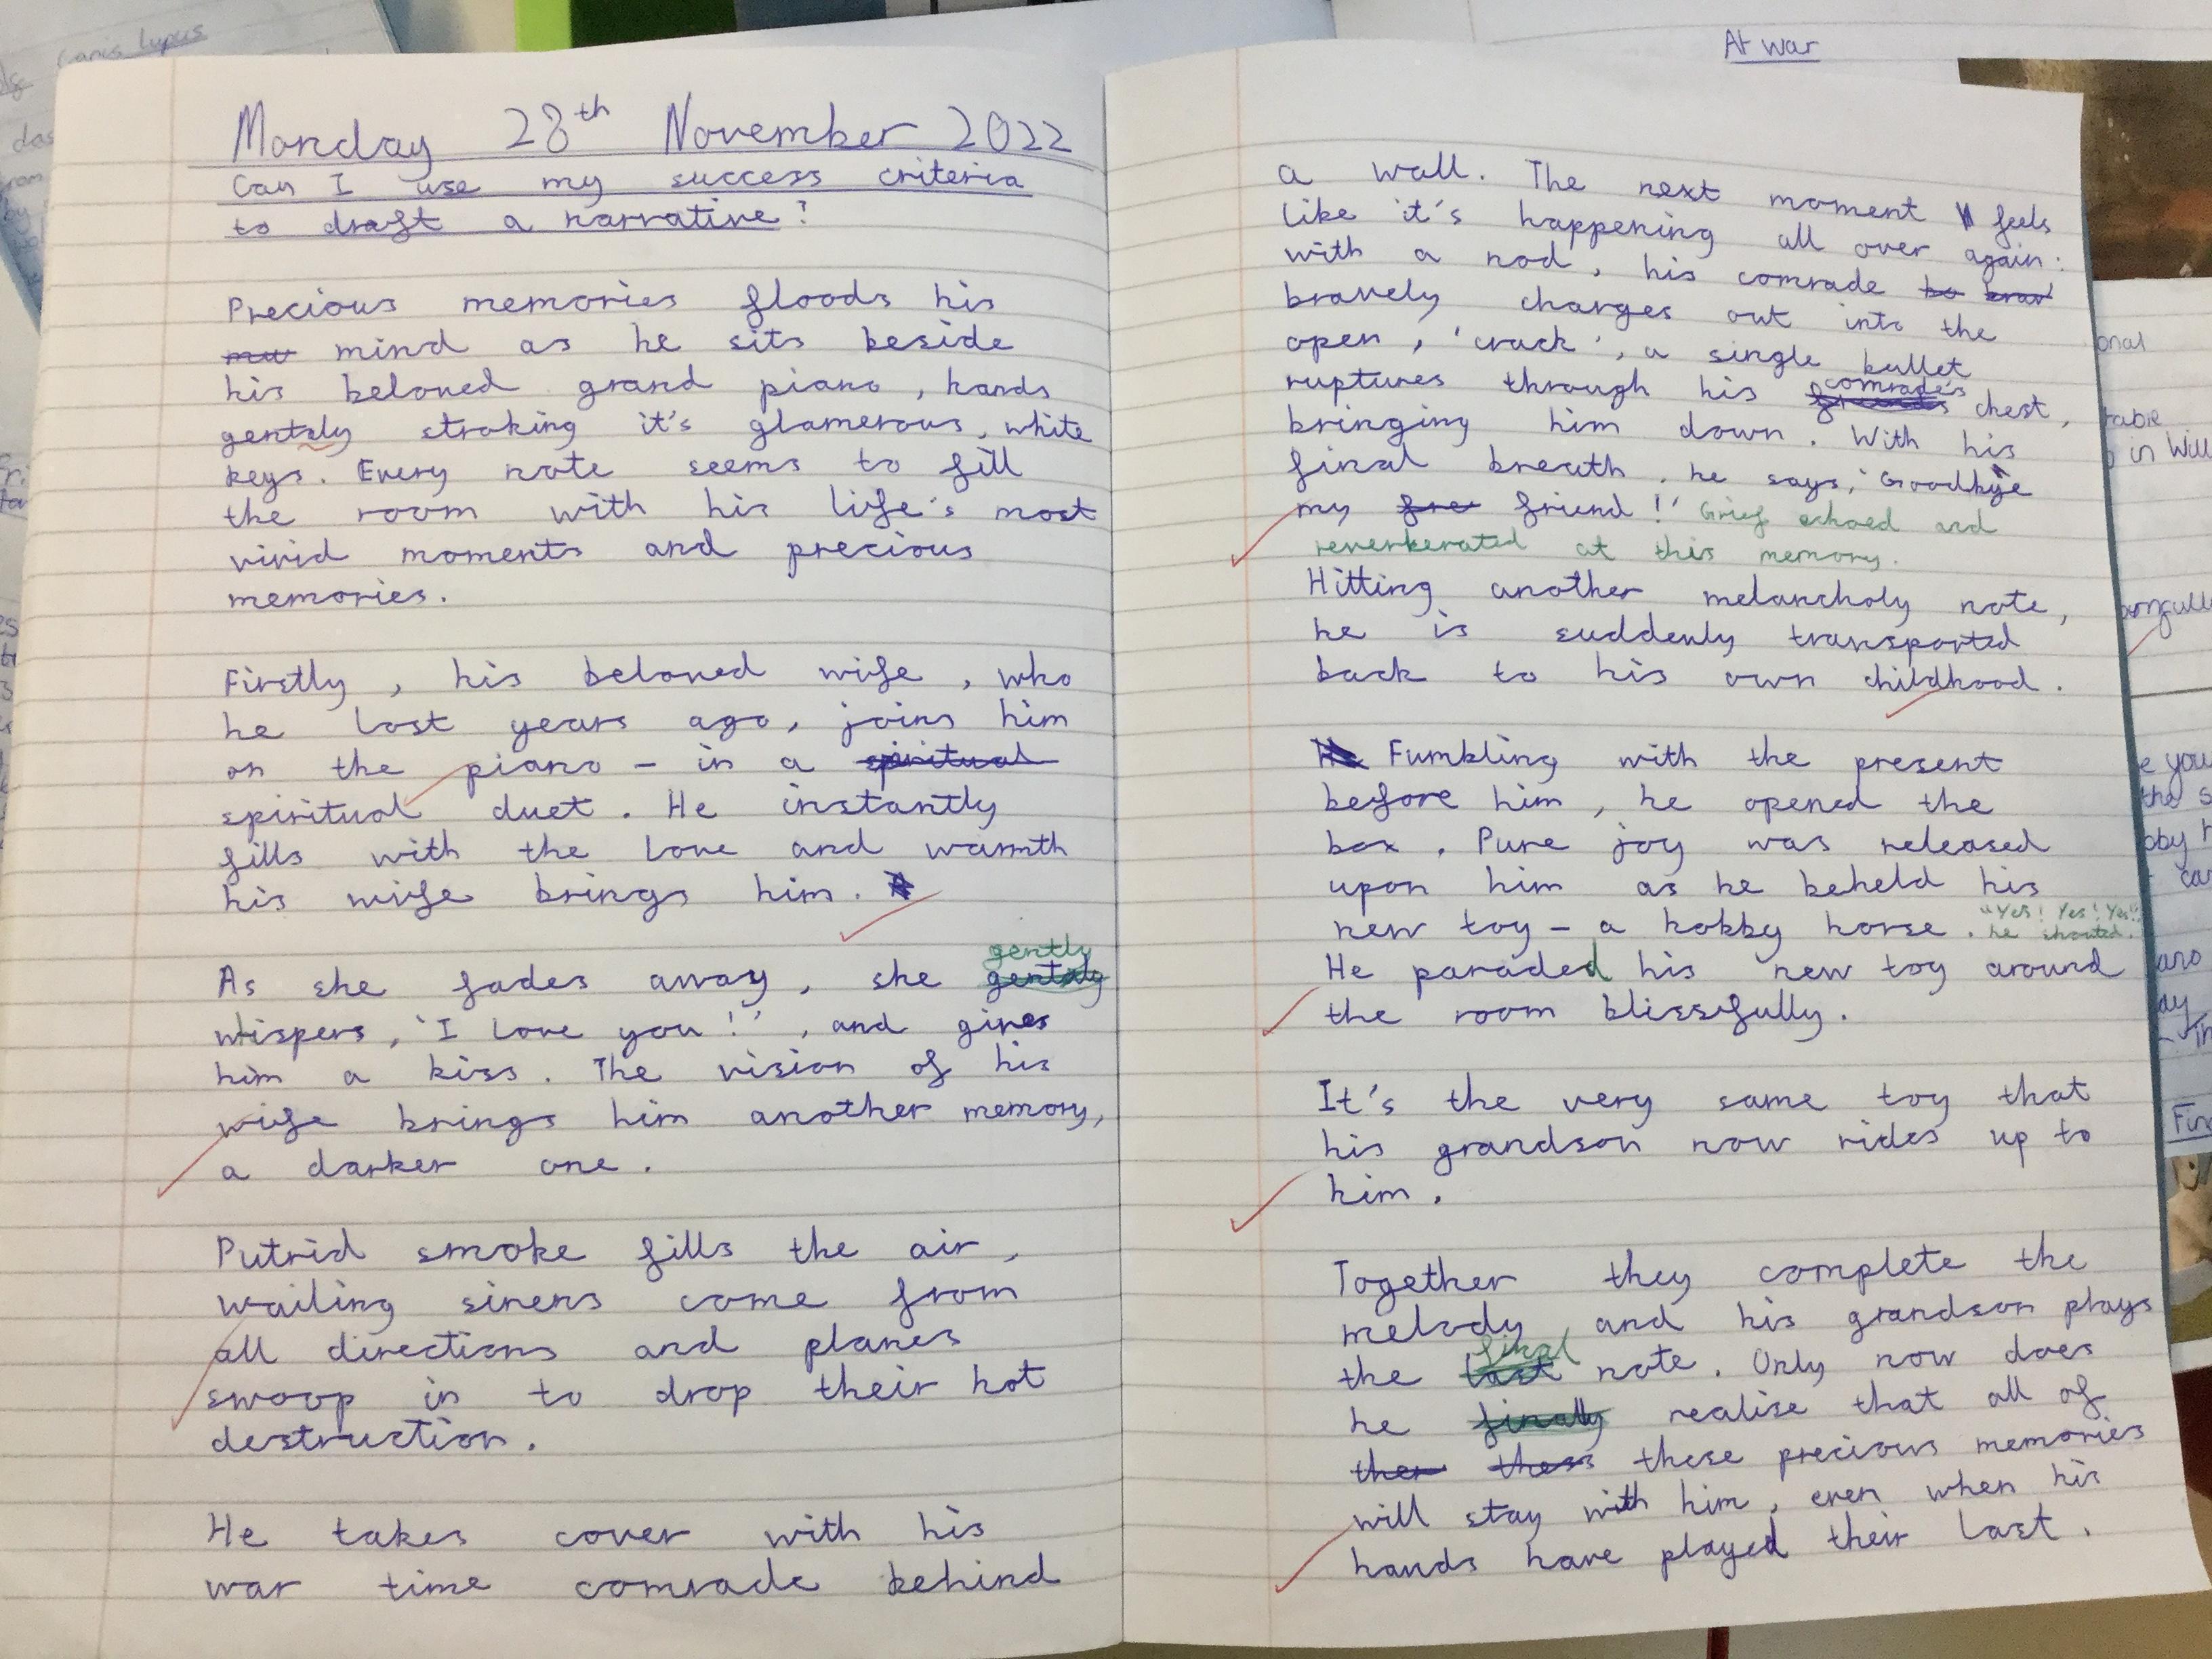 Monday 28th November 2022
Can I use my success criteria
to draft a narrative?
Precious memories floods his
mind as he sits beside
his beloved grand piano, hands
gentely stroking it's glamerous, white
keys. Every note seems to fill
the room with his life's most
vivid moments and precious
memories.
Firstly, his beloved wife, who
he lost years ago, joins him
on the piano - in a spiritual
spiritual duet. He instantly
fills with the love and warmth
his wife brings him.
gently
As she fades away, she
whispers, 'I love you!', and gives
him a kiss. The vision of his
wife brings him another memory,
a darker one.
Putrid smoke fills the air,
wailing sirens come from
all directions and planes
swoop in to drop their hot
destruction.
He takes cover with his
war time comrade behind
a wall. The next moment feels
like it's happening all over again:
with a nod, his comrade
bravely charges out into the
open, 'crack', a single bullet
comrade's
ruptures through his chest,
bringing him down. With his
final breath, he says, 'Goodbye
my friend!' Grief echoed and
reverberated at this memory.
Hitting another melancholy note,
he is suddenly transported
back to his own childhood.
Fumbling with the present
before him, he opened the
box. Pure joy was released
upon him as he beheld his
"Yes! Yes! Yes!"
new toy - a hobby horse. he shouted.
He paraded his new toy around
the room blissfully.
It's the very same toy that
his grandson now rides up to
him.
Together they complete the
melody and his grandson plays
final
the last note. Only now does
he finally realise that all of
these precious memories
will stay with him, even when his
hands have played their last.
At war
Canis lupus